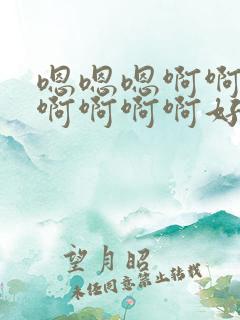 嗯嗯嗯啊啊
啊啊啊啊好
望月昭
未经同意禁止转载